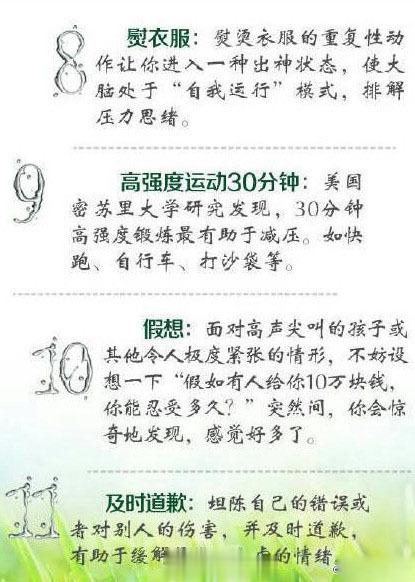 8 熨衣服：熨烫衣服的重复性动
作让你进入一种出神状态，使大
脑处于“自我运行”模式，排解
压力思绪。
9 高强度运动30分钟：美国
密苏里大学研究发现，30分钟
高强度锻炼最有助于减压。如快
跑、自行车、打沙袋等。
10 假想：面对高声尖叫的孩子或
其他令人极度紧张的情形，不妨设
想一下“假如有人给你10万块钱，
你能忍受多久？”突然间，你会惊
奇地发现，感觉好多了。
11 及时道歉：坦陈自己的错误或
者对别人的伤害，并及时道歉，
有助于缓解 虑的情绪。